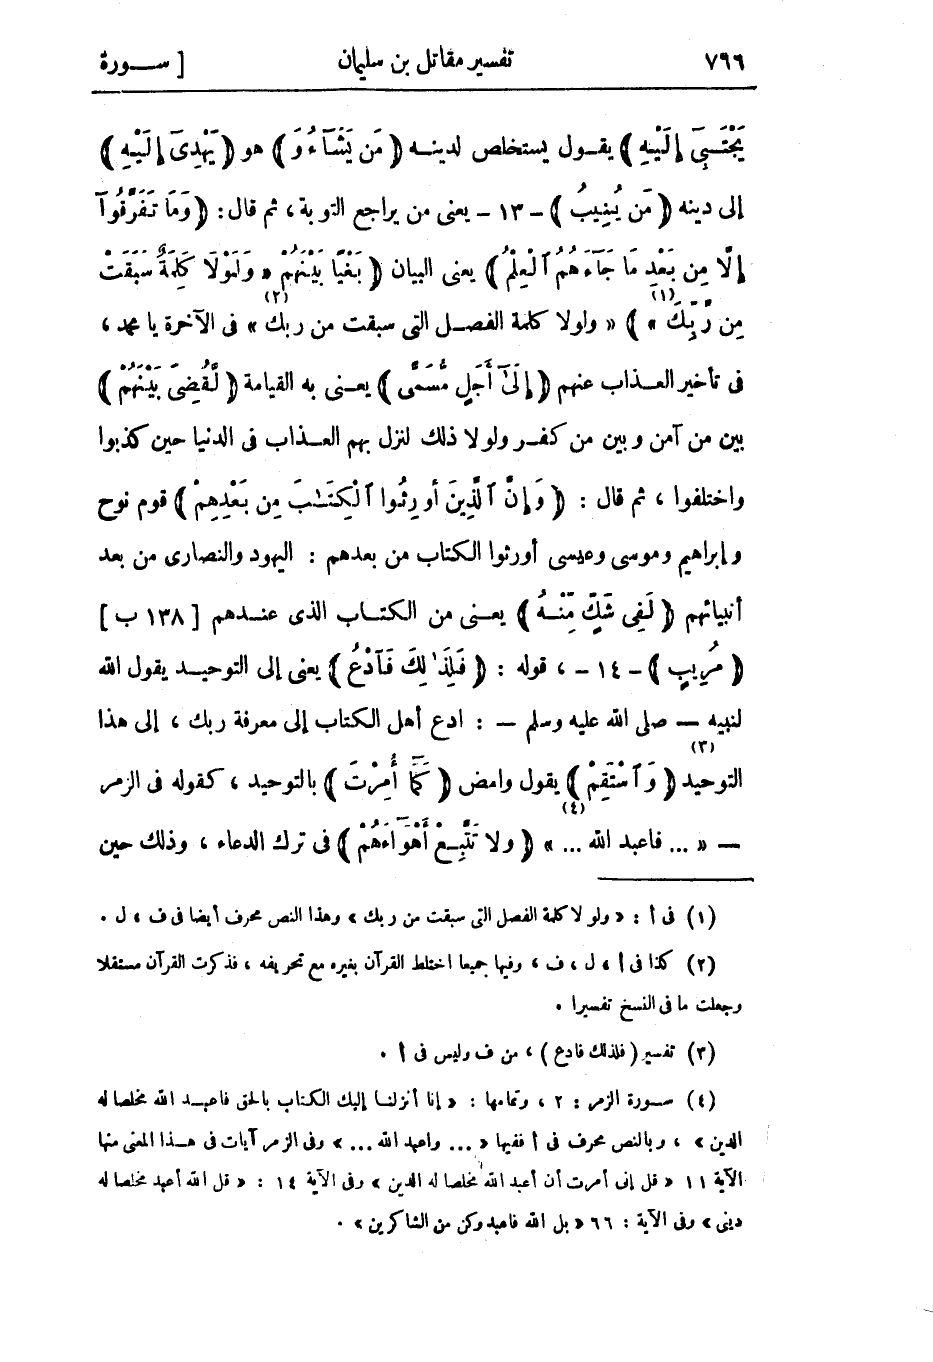 ٧٩٦ تفسير مقاتل بن سليمان [ ســورة
يَجْتَبِىٓ إِلَيْهِ ) يقول يستخلص لدينه ( مَن يَشَآءُ وَ ) هو ( يَهْدِىٓ إِلَيْهِ )
إلى دينه ( مَن يُنِيبُ ) - ١٣ - يعنى من يراجع التوبة ، ثم قال : ( وَمَا تَفَرَّقُوٓا
إِلَّا مِن بَعْدِ مَا جَآءَهُمُ ٱلْعِلْمُ ) يعنى البيان ( بَغْيًا بَيْنَهُمْ « وَلَوْلَا كَلِمَةٌ سَبَقَتْ
مِن رَّبِّكَ » (١) ) « ولولا كلمة الفصل التى سبقت من ربك » (٢) فى الآخرة يا محمد ،
فى تأخير العذاب عنهم ( إِلَىٰٓ أَجَلٍ مُّسَمًّى ) يعنى به القيامة ( لَّقُضِىَ بَيْنَهُمْ )
بين من آمن وبين من كفر ولولا ذلك لنزل بهم العذاب فى الدنيا حين كذبوا
واختلفوا ، ثم قال : ( وَإِنَّ ٱلَّذِينَ أُورِثُوا ٱلْكِتَـٰبَ مِن بَعْدِهِمْ ) قوم نوح
وإبراهيم وموسى وعيسى أورثوا الكتاب من بعدهم : اليهود والنصارى من بعد
أنبيائهم ( لَفِى شَكٍّ مِّنْهُ ) يعنى من الكتاب الذى عندهم [ ١٣٨ ب ]
( مُرِيبٍ ) - ١٤ - ، قوله : ( فَلِذَٰلِكَ فَٱدْعُ ) يعنى إلى التوحيد يقول الله
لنبيه — صلى الله عليه وسلم — : ادع أهل الكتاب إلى معرفة ربك ، إلى هذا
التوحيد (٣) ( وَٱسْتَقِمْ ) يقول وامض ( كَمَآ أُمِرْتَ ) بالتوحيد ، كقوله فى الزمر
— « ... فاعبد الله ... » (٤) ( ولا تَتَّبِعْ أَهْوَآءَهُمْ ) فى ترك الدعاء ، وذلك حين
(١) فى أ : « ولولا كلمة الفصل التى سبقت من ربك » وهذا النص محرف أيضا فى ف ، ل .
(٢) كذا فى أ ، ل ، ف ، وفيها جميعا اختلط القرآن بغيره مع تحريفه ، فذكرت القرآن مستقلا
وجعلت ما فى النسخ تفسيرا .
(٣) تفسير ( فلذلك فادع ) ، من ف وليس فى أ .
(٤) سورة الزمر : ٢ ، وتمامها : « إنا أنزلنا إليك الكتاب بالحق فاعبد الله مخلصا له
الدين » ، وبالنص محرف فى أ ففيها « ... واعبد الله ... » وفى الزمر آيات فى هذا المعنى منها
الآية ١١ « قل إنى أمرت أن أعبد الله مخلصا له الدين » وفى الآية ١٤ : « قل الله أعبد مخلصا له
دينى » وفى الآية : ٦٦ « بل الله فاعبد وكن من الشاكرين » .